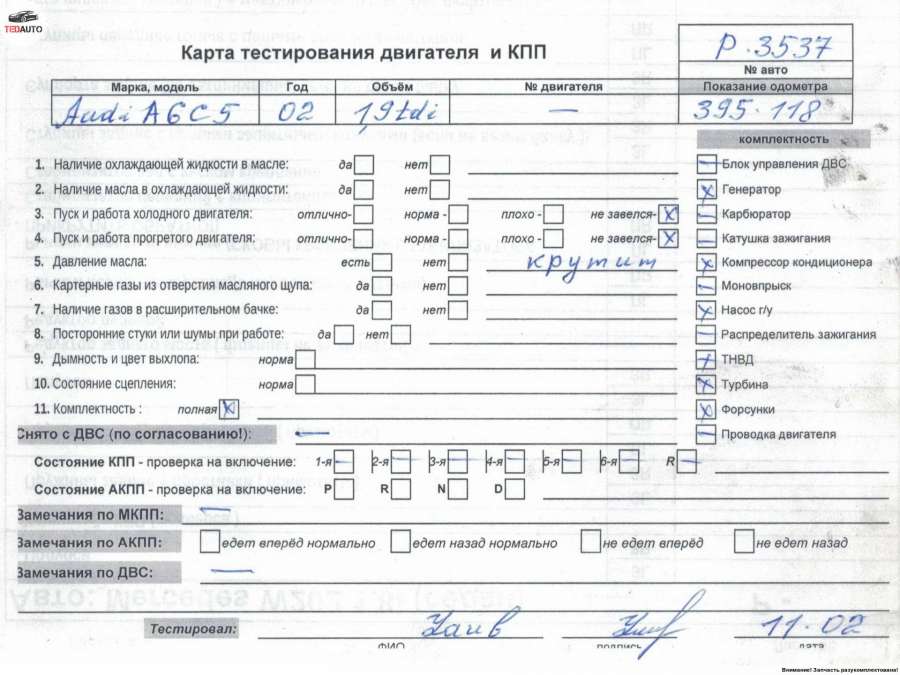 TEDAUTO
Карта тестирования двигателя и КПП
Р.3537
№ авто
Марка, модель Год Объём № двигателя Показание одометра
Audi A6C5 02 1,9tdi — 395.118
комплектность
1. Наличие охлаждающей жидкости в масле: да нет
Блок управления ДВС
2. Наличие масла в охлаждающей жидкости: да нет
Генератор
3. Пуск и работа холодного двигателя: отлично- норма - плохо - не завелся-
Карбюратор
4. Пуск и работа прогретого двигателя: отлично- норма - плохо - не завелся-
Катушка зажигания
5. Давление масла: есть нет крутит
Компрессор кондиционера
6. Картерные газы из отверстия масляного щупа: да нет
Моновпрыск
7. Наличие газов в расширительном бачке: да нет
Насос г/у
8. Посторонние стуки или шумы при работе: да нет
Распределитель зажигания
9. Дымность и цвет выхлопа: норма
ТНВД
10. Состояние сцепления: норма
Турбина
11. Комплектность : полная
Форсунки
Снято с ДВС (по согласованию!): —
Проводка двигателя
Состояние КПП - проверка на включение: 1-я 2-я 3-я 4-я 5-я 6-я R
Состояние АКПП - проверка на включение: P R N D
Замечания по МКПП: —
Замечания по АКПП: едет вперёд нормально едет назад нормально не едет вперёд не едет назад
Замечания по ДВС: —
Тестировал: 11.02
ФИО подпись дата
Внимание! Запчасть разукомплектована!